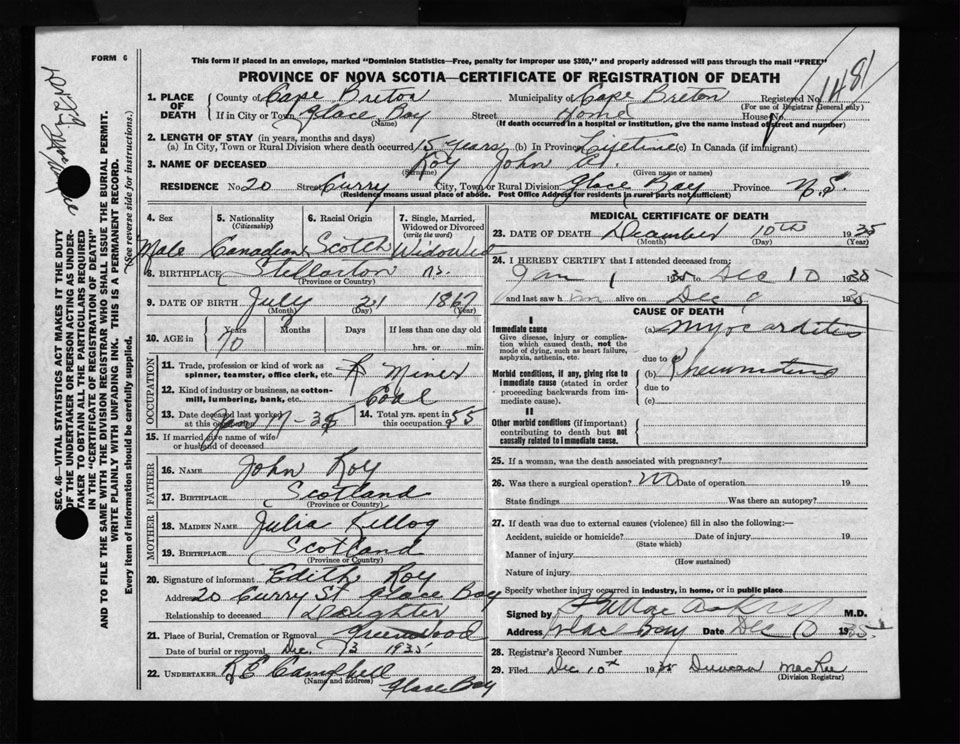 FORM 6
This form if placed in an envelope, marked "Dominion Statistics—Free, penalty for improper use $300," and properly addressed will pass through the mail "FREE"
PROVINCE OF NOVA SCOTIA—CERTIFICATE OF REGISTRATION OF DEATH
1481
1. PLACE OF DEATH { County of Cape Breton Municipality of Cape Breton Registered No.
(For use of Registrar General only)
If in City or Town Glace Bay Street Home House No.
(Name) (If death occurred in a hospital or institution, give the name instead of street and number)
2. LENGTH OF STAY (in years, months and days)
(a) In City, Town or Rural Division where death occurred 15 years (b) In Province Lifetime (c) In Canada (if immigrant)
3. NAME OF DECEASED Roy John
(Surname) (Given name or names)
RESIDENCE No. 20 Street Curry City, Town or Rural Division Glace Bay Province N.S.
(Residence means usual place of abode. Post Office Address for residents in rural parts not sufficient)
SEC. 46—VITAL STATISTICS ACT MAKES IT THE DUTY
OF THE UNDERTAKER OR PERSON ACTING AS UNDER-
TAKER TO OBTAIN ALL THE PARTICULARS REQUIRED
IN THE "CERTIFICATE OF DEATH"
AND TO FILE THE SAME WITH THE DIVISION REGISTRAR WHO SHALL ISSUE THE BURIAL PERMIT.
WRITE PLAINLY WITH UNFADING INK. THIS IS A PERMANENT RECORD.
Every item of information should be carefully supplied. (See reverse side for instructions.)
4. Sex 5. Nationality (Citizenship) 6. Racial Origin 7. Single, Married, Widowed or Divorced (write the word)
Male Canadian Scotch Widowed
8. BIRTHPLACE Stellarton n.s.
(Province or Country)
9. DATE OF BIRTH July 21 1867
(Month) (Day) (Year)
10. AGE in Years Months Days If less than one day old
70 hrs. or min.
OCCUPATION
11. Trade, profession or kind of work as spinner, teamster, office clerk, etc. R Miner
12. Kind of industry or business, as cotton-mill, lumbering, bank, etc. Coal
13. Date deceased last worked at this occupation 14. Total yrs. spent in this occupation 55
15. If married give name of wife or husband of deceased
FATHER
16. NAME John Roy
17. BIRTHPLACE Scotland
(Province or Country)
MOTHER
18. MAIDEN NAME Julia Killog
19. BIRTHPLACE Scotland
(Province or Country)
20. Signature of informant Edith Roy
Address 20 Curry St Glace Bay
Relationship to deceased Daughter
21. Place of Burial, Cremation or Removal Greenwood
Date of burial or removal Dec. 13 1935
22. UNDERTAKER Campbell
(Name and address) Glace Bay
MEDICAL CERTIFICATE OF DEATH
23. DATE OF DEATH December 10th 1935
(Month) (Day) (Year)
24. I HEREBY CERTIFY that I attended deceased from:
Jan 1 1935 to Dec 10 1935
and last saw him alive on Dec 9 1935
CAUSE OF DEATH
I
Immediate cause (a) Myocarditis
Give disease, injury or complication which caused death, not the mode of dying, such as heart failure, asphyxia, asthenia, etc.
due to
Morbid conditions, if any, giving rise to immediate cause (stated in order proceeding backwards from immediate cause). (b) Rheumatism
due to
(c)
II
Other morbid conditions (if important) contributing to death but not causally related to immediate cause.
25. If a woman, was the death associated with pregnancy?
26. Was there a surgical operation? No Date of operation 19
State findings Was there an autopsy?
27. If death was due to external causes (violence) fill in also the following:—
Accident, suicide or homicide? Date of injury 19
(State which)
Manner of injury
(How sustained)
Nature of injury
Specify whether injury occurred in industry, in home, or in public place
Signed by M.D.
Address Glace Bay Date Dec 10 1935
28. Registrar's Record Number
29. Filed Dec 10th 1935 Duncan MacRae
(Division Registrar)